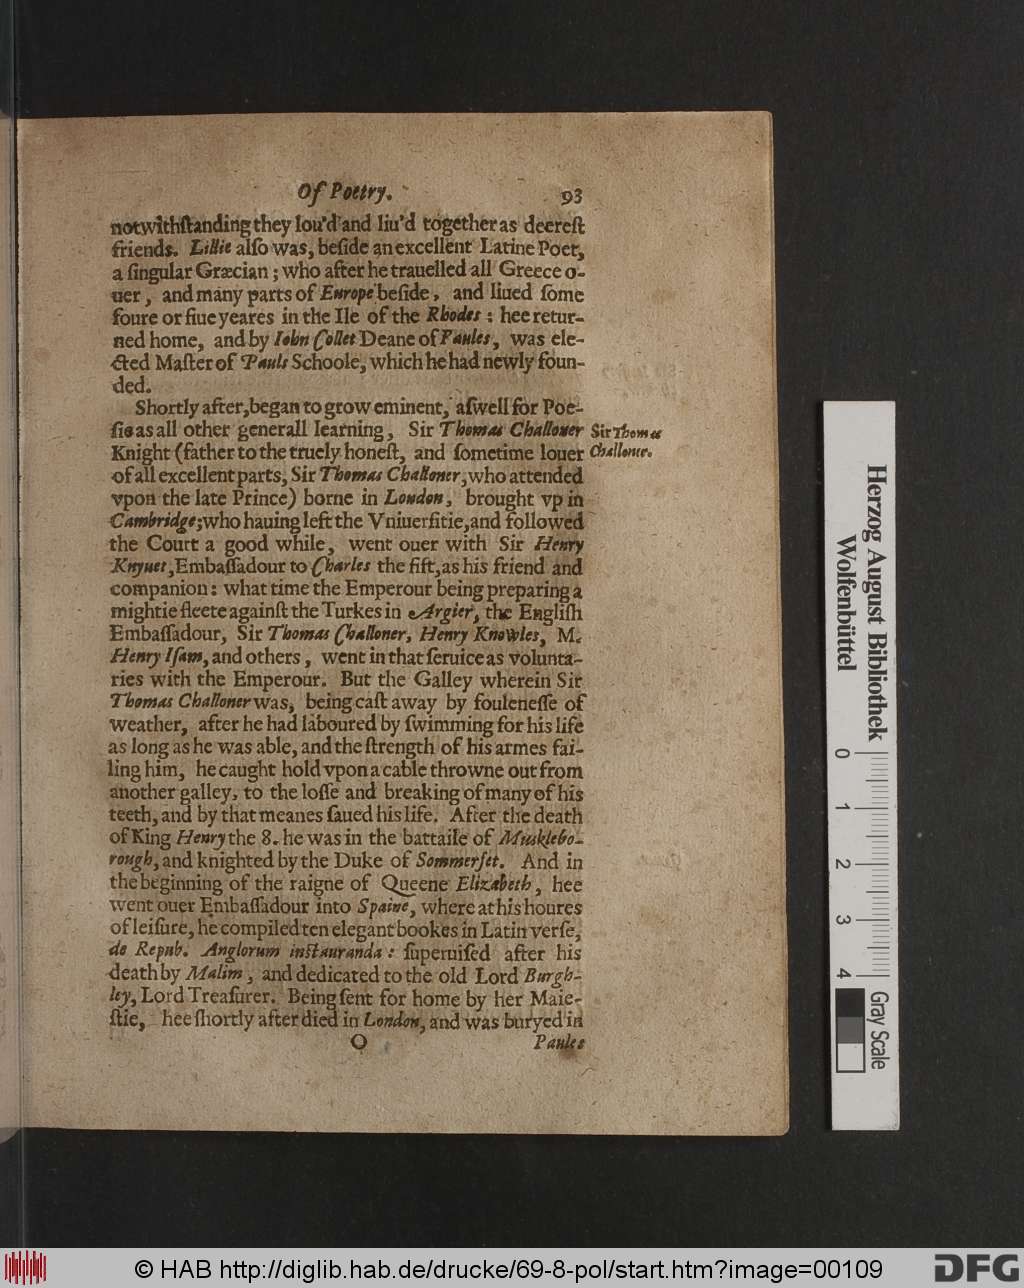 Of Poetry. 93
notwithſtanding they lou'd and liu'd together as deereſt
friends. Lillie alſo was, beſide an excellent Latine Poet,
a ſingular Græcian; who after he trauelled all Greece o-
uer, and many parts of Europe beſide, and liued ſome
foure or fiue yeares in the Ile of the Rhodes: hee retur-
ned home, and by Iohn Collet Deane of Paules, was ele-
cted Maſter of Pauls Schoole, which he had newly foun-
ded.
Shortly after, began to grow eminent, aſwell for Poe-
ſie as all other generall learning, Sir Thomas Challoner
Sir Thomas
Challoner.
Knight (father to the truely honeſt, and ſometime louer
of all excellent parts, Sir Thomas Challoner, who attended
vpon the late Prince) borne in London, brought vp in
Cambridge; who hauing left the Vniuerſitie, and followed
the Court a good while, went ouer with Sir Henry
Knyuet, Embaſſadour to Charles the fift, as his friend and
companion: what time the Emperour being preparing a
mightie fleete againſt the Turkes in Argier, the Engliſh
Embaſſadour, Sir Thomas Challoner, Henry Knowles, M.
Henry Iſam, and others, went in that ſeruice as volunta-
ries with the Emperour. But the Galley wherein Sir
Thomas Challoner was, being caſt away by fouleneſſe of
weather, after he had laboured by ſwimming for his life
as long as he was able, and the ſtrength of his armes fai-
ling him, he caught hold vpon a cable throwne out from
another galley, to the loſſe and breaking of many of his
teeth, and by that meanes ſaued his life. After the death
of King Henry the 8. he was in the battaile of Muskleboo-
rough, and knighted by the Duke of Sommerſet. And in
the beginning of the raigne of Queene Elizabeth, hee
went ouer Embaſſadour into Spaine, where at his houres
of leiſure, he compiled ten elegant bookes in Latin verſe,
de Repub. Anglorum inſtauranda: ſuperuiſed after his
death by Malim, and dedicated to the old Lord Burgh-
ley, Lord Treaſurer. Being ſent for home by her Maie-
ſtie, hee ſhortly after died in London, and was buryed in
O Paules
Herzog August Bibliothek
Wolfenbüttel
0 1 2 3 4
Gray Scale
© HAB http://diglib.hab.de/drucke/69-8-pol/start.htm?image=00109
DFG